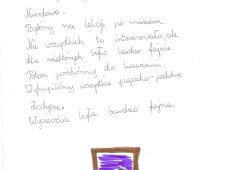 Narodowe.
Byliśmy na lekcji po muzeum.
Nie wszystkich to interesowało, ale
dla niektórych było bardzo fajnie.
Potem poszliśmy do kawiarni.
Wykupiliśmy wszystkie pączko-podobne
Wycieczka była bardzo fajna.